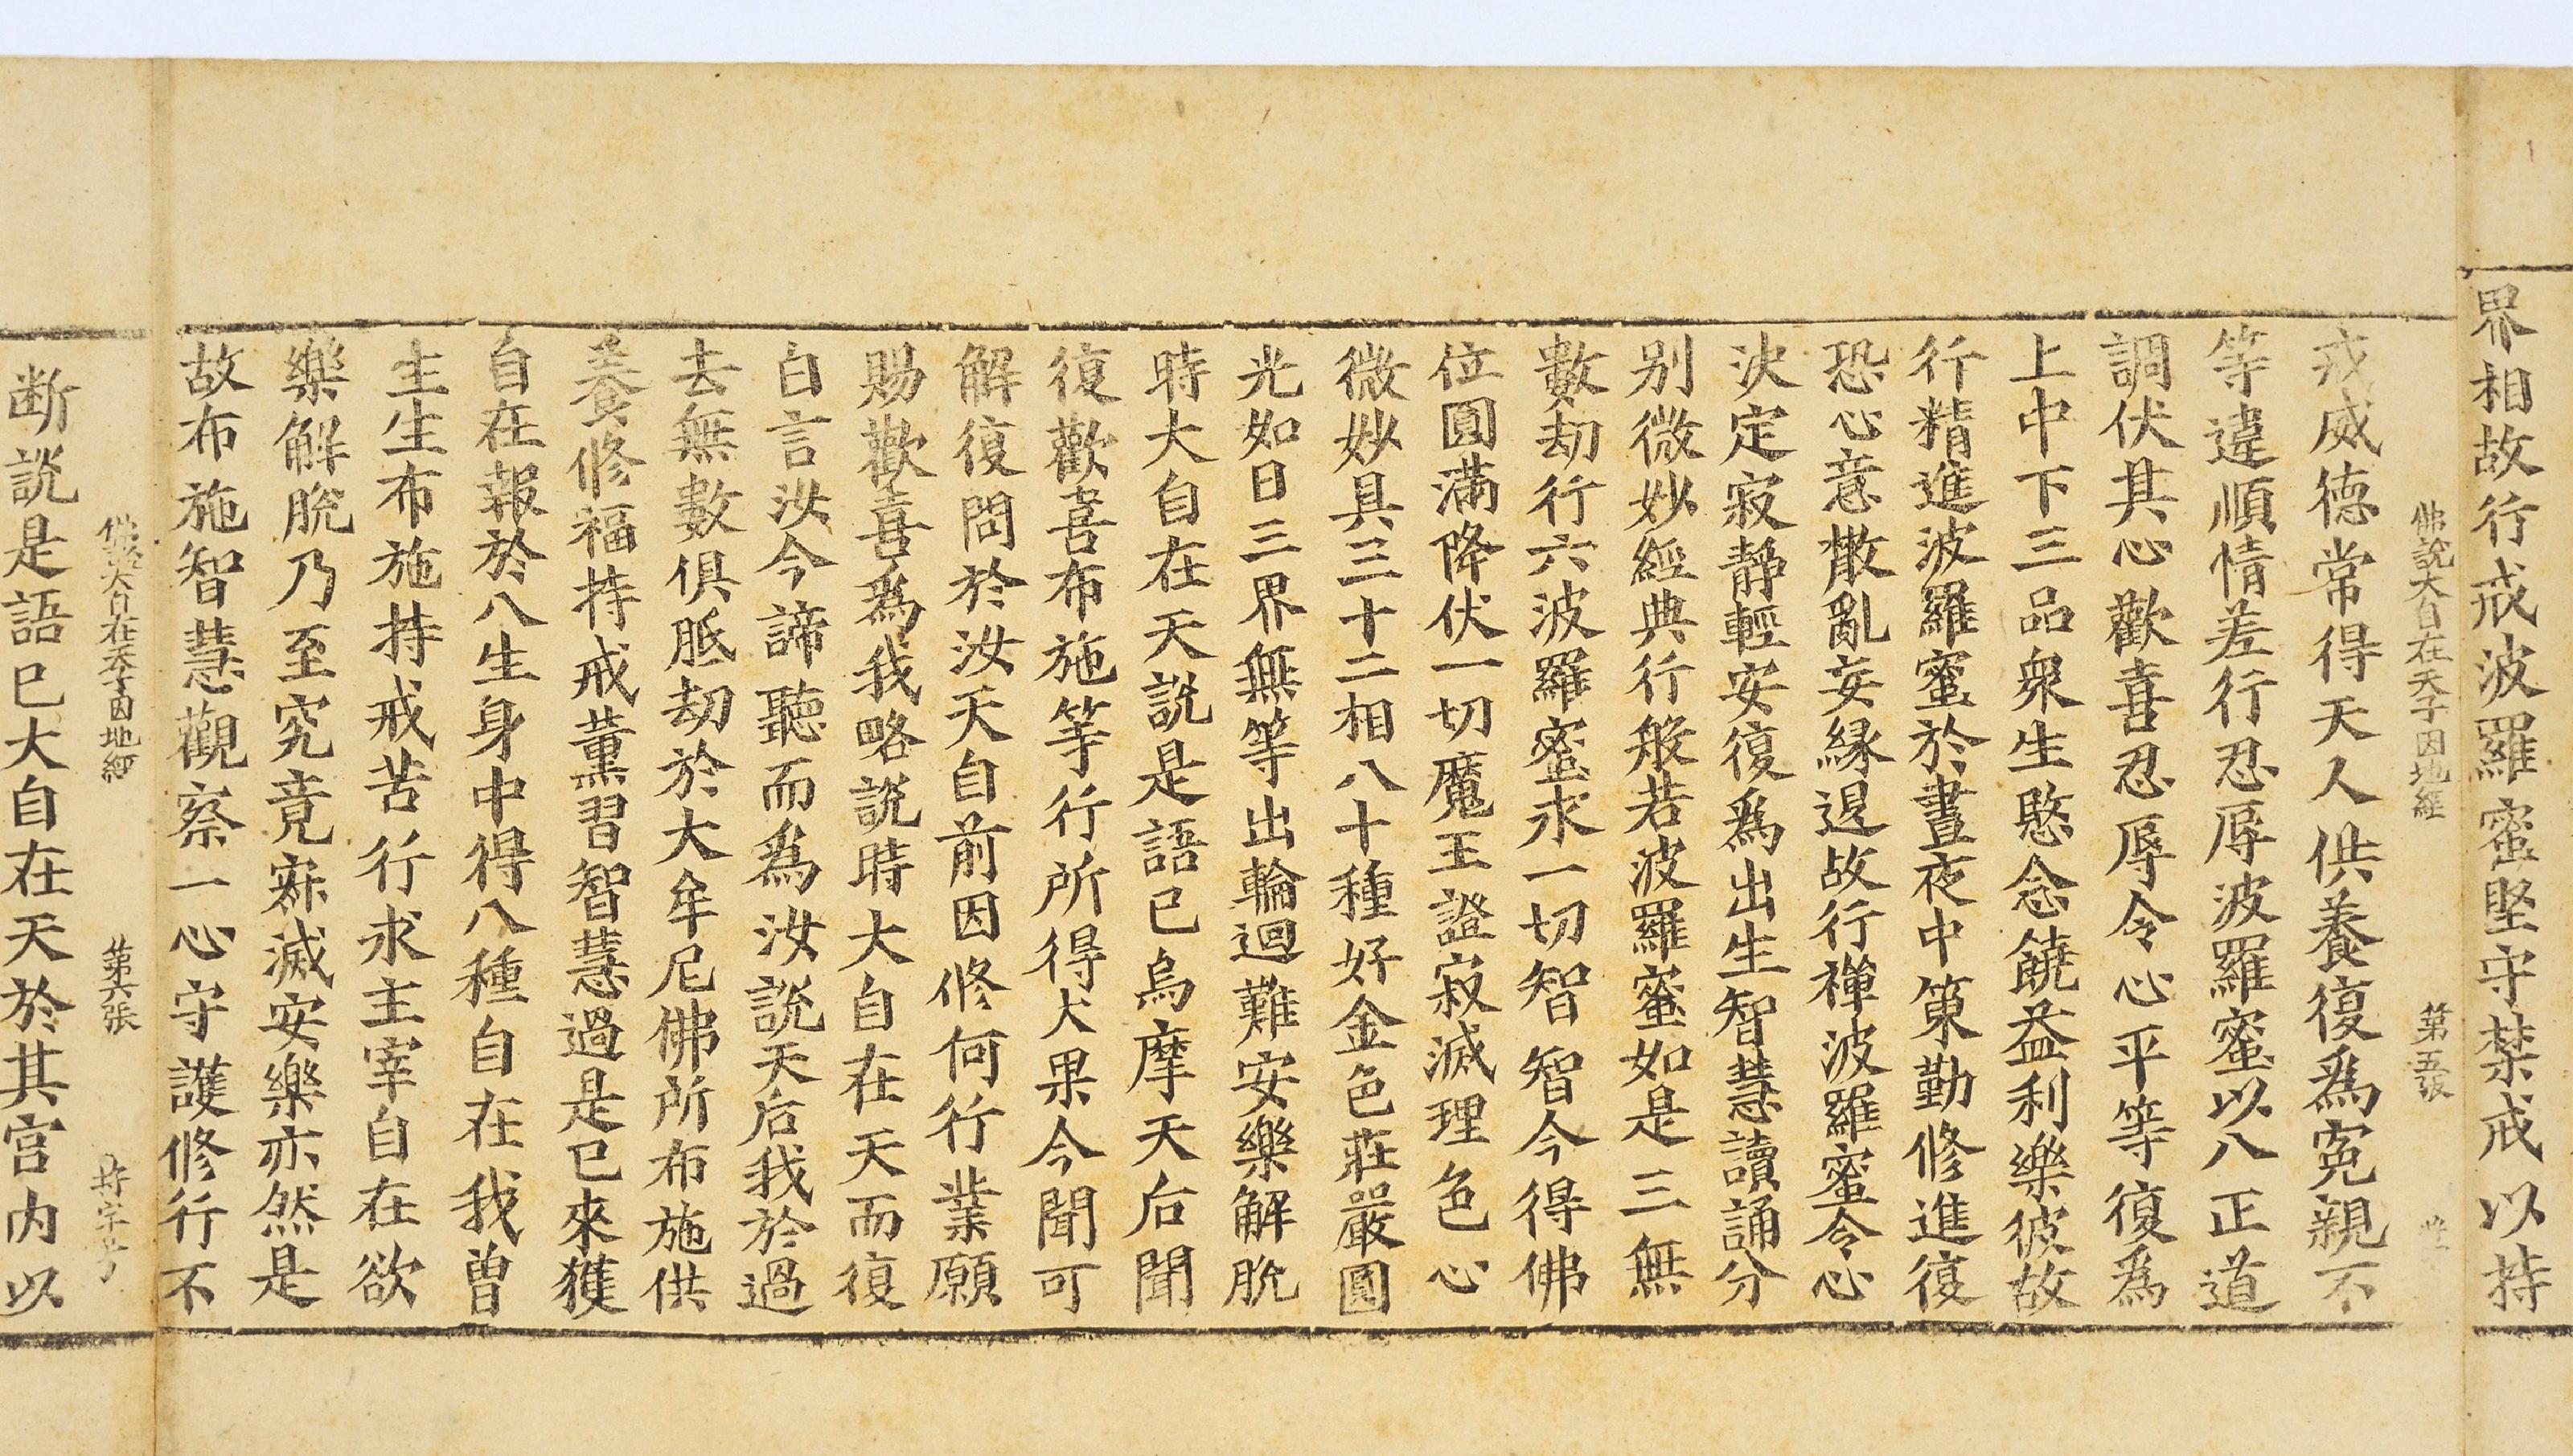 界相故行戒波羅蜜堅守禁戒以持
佛說大自在天子因地經 第五張
戒威德常得天人供養復爲寃親不
等違順情差行忍辱波羅蜜以八正道
調伏其心歡喜忍辱令心平等復爲
上中下三品衆生愍念饒益利樂彼故
行精進波羅蜜於晝夜中策勤修進復
恐心意散亂妄緣退故行禪波羅蜜令心
決定寂靜輕安復爲出生智慧讀誦分
别微妙經典行般若波羅蜜如是三無
數劫行六波羅蜜求一切智智今得佛
位圓滿降伏一切魔王證寂滅理色心
微妙具三十二相八十種好金色莊嚴圓
光如日三界無等出輪迴難安樂解脫
時大自在天說是語已烏摩天后聞
復歡喜布施等行所得大果今聞可
解復問於汝天自前因修何行業願
賜歡喜爲我略說時大自在天而復
白言汝今諦聽而爲汝說天后我於過
去無數俱胝劫於大牟尼佛所布施供
養修福持戒薰習智慧過是已來獲
自在報於八生身中得八種自在我曾
生生布施持戒苦行求主宰自在欲
樂解脫乃至究竟寂滅安樂亦然是
故布施智慧觀察一心守護修行不
佛說大自在天子因地經 第六張
断說是語已大自在天於其宮内以